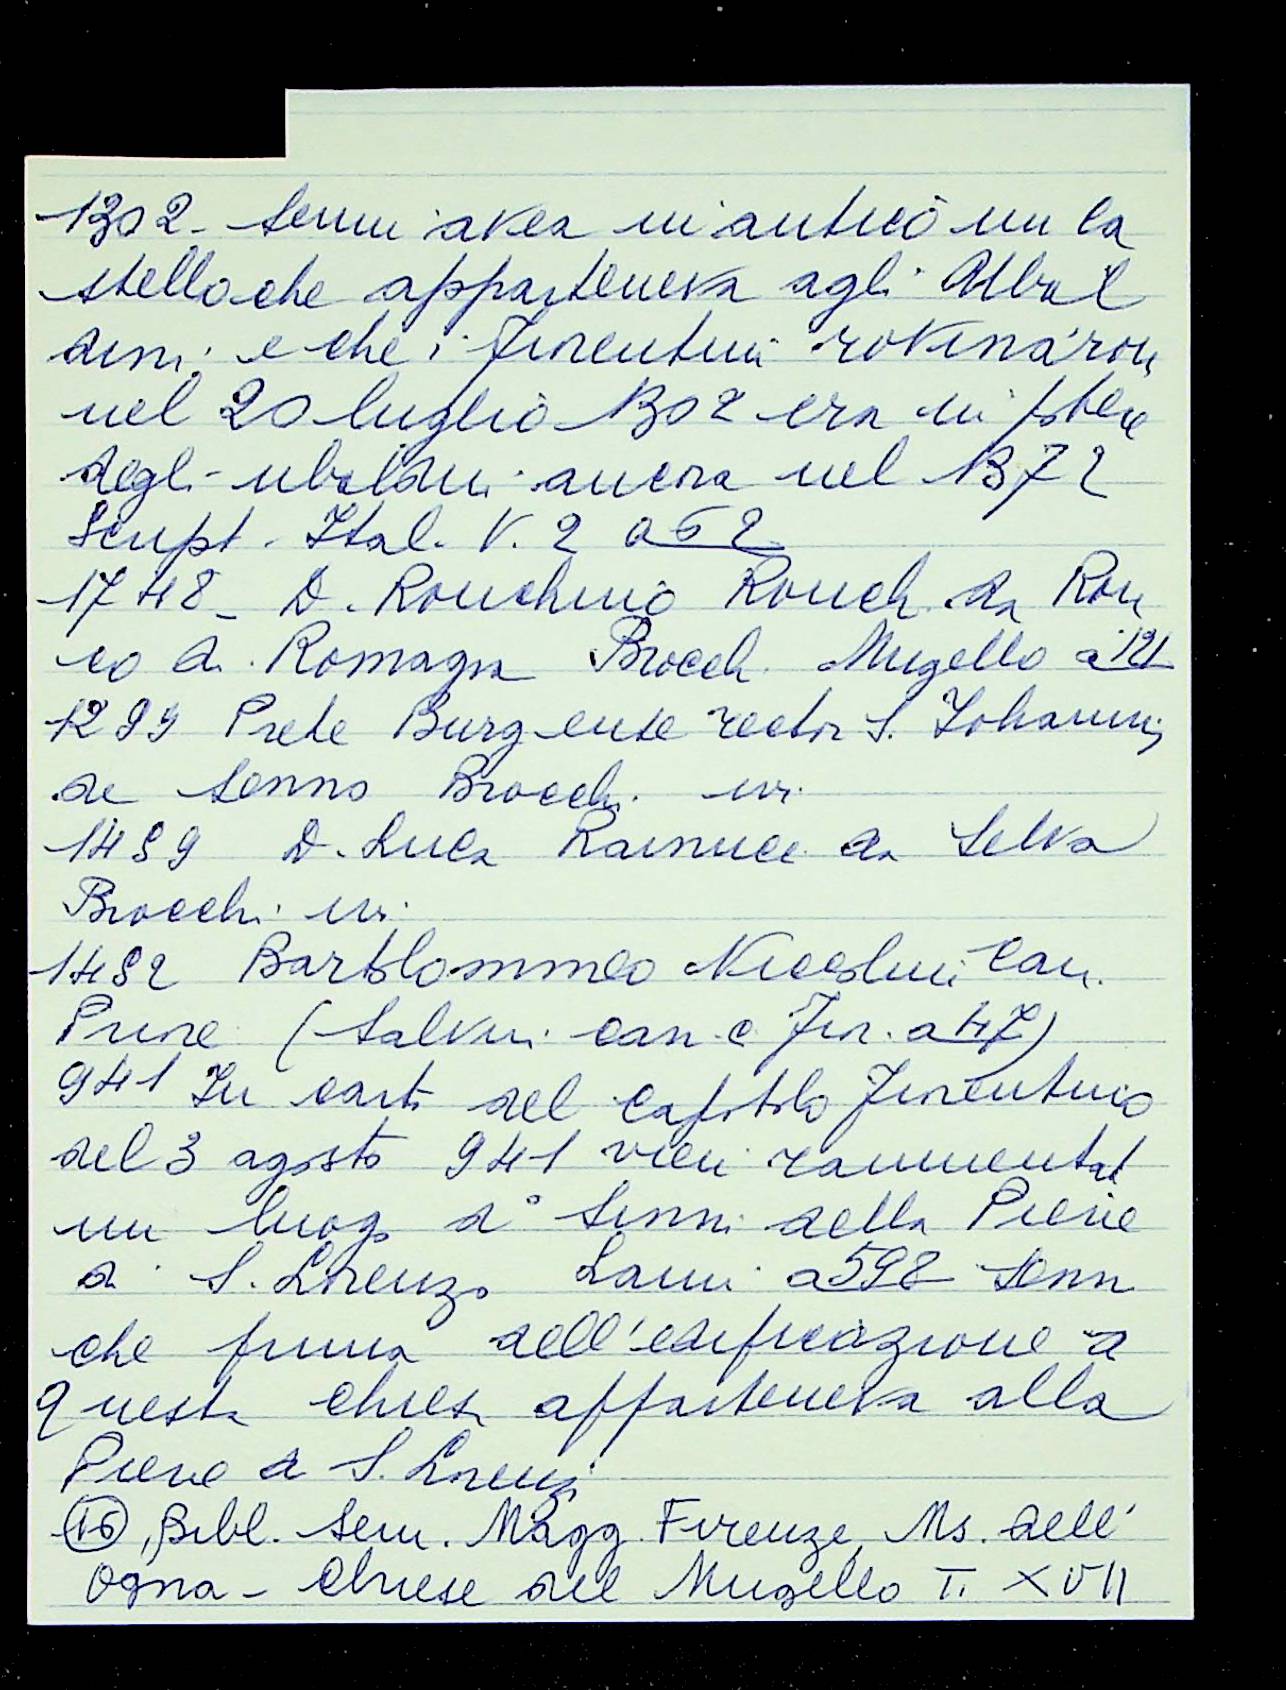 1302 - Senni avea in antico un ca
stello che apparteneva agli Ubal
dini e che i Fiorentini rovinaron
nel 20 luglio 1302 era in potere
degli ubaldini ancora nel 1372
Script. Ital. V. 2 a 62
1748 - D. Ronchino Ronch. da Ron
co di Romagna Brocch. Mugello a 121
1299 Prete Burgense rector S. Johannis
de Senno Brocchi ivi
1489 D. Luca Rainucc da Selva
Brocchi ivi
1482 Bartolommeo Niccolini Can.
Priore (Salvini can.c Fior. a 47)
941 In carta del Capitolo Fiorentino
del 3 agosto 941 vien rammentat
un luogo d° Sinni della Pieve
di S. Lorenzo Lami a 598 Senn
che prima dell'edificazione di
questa chiesa apparteneva alla
Pieve di S. Lorenzo
(16), Bibl. Sem. Magg. Firenze, Ms. dell'
Ogna - Chiese del Mugello T. XVII